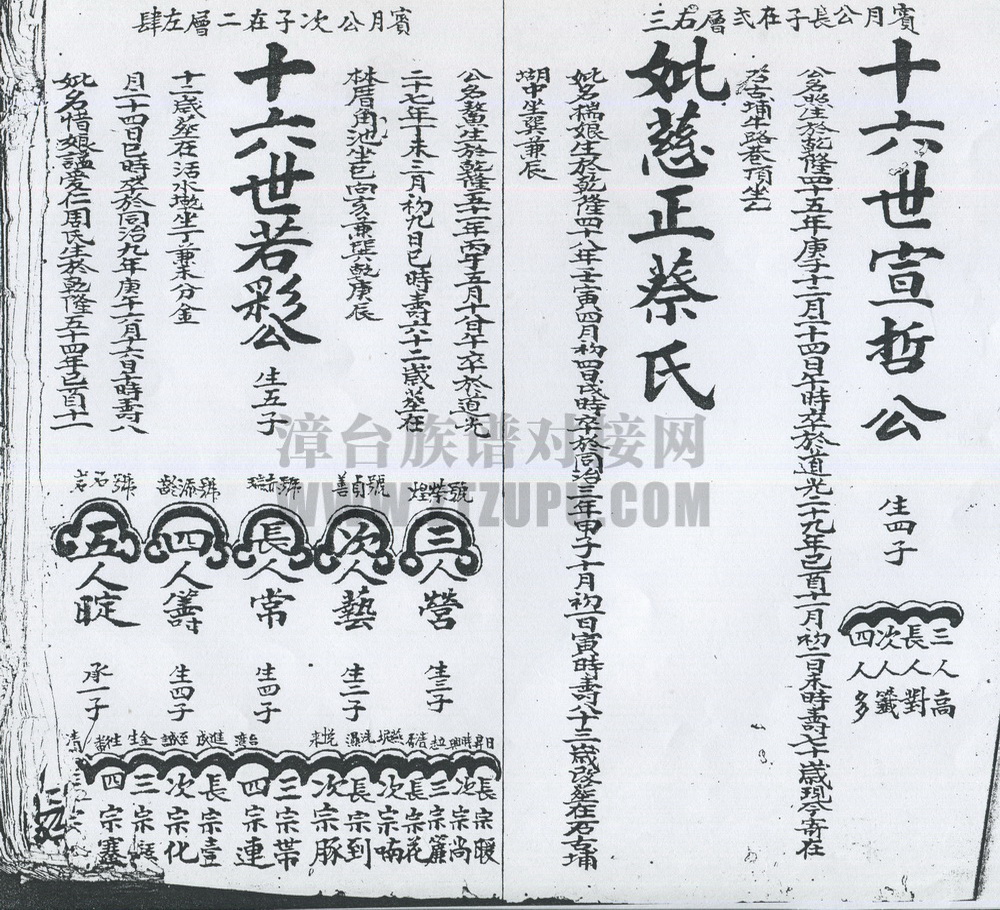 賓月公長子在弍層右三
十六世宣哲公
生四子
三人高
長人對
次人籤
四人多
公名照生於乾隆四十五年庚子十二月二十四日午時卒於道光二十九年己酉十一月初二日未時壽七十歲現金寄在
石古埔牛路巷頂坐乙
妣慈正蔡氏
妣名襦娘生於乾隆四十八年壬寅四月初四日辰時卒於同治三年甲子十月初一日寅時壽八十三歲改塟在石古埔
坐巽兼辰
賓月公次子在二層左肆
公名鰲生於乾隆五十一年丙午五月十八日午卒於道光
二十七年丁未三月初九日巳時壽六十二歲塟在
林厝角池坐巳向亥兼巽乾庚辰
十六世若彩公
生五子
三人營
次人藝
長人常
四人籌
五人碇
號榮煌
號貞善
號添
號石
生三子
生二子
生四子
生四子
承一子
長宗暖
次宗尚
三宗簾
長宗花
次宗喃
長宗到
次宗豚
三宗帶
四宗連
長宗壹
次宗化
三宗
四宗寨
十二歲塟在活水墩坐丁兼未分金
月二十四日巳時卒於同治九年庚午六月十六日午時壽八
妣名惜娘諡愛仁周氏生於乾隆五十四年己酉十一
漳台族谱对接网
WWW.ZTZUPU.COM